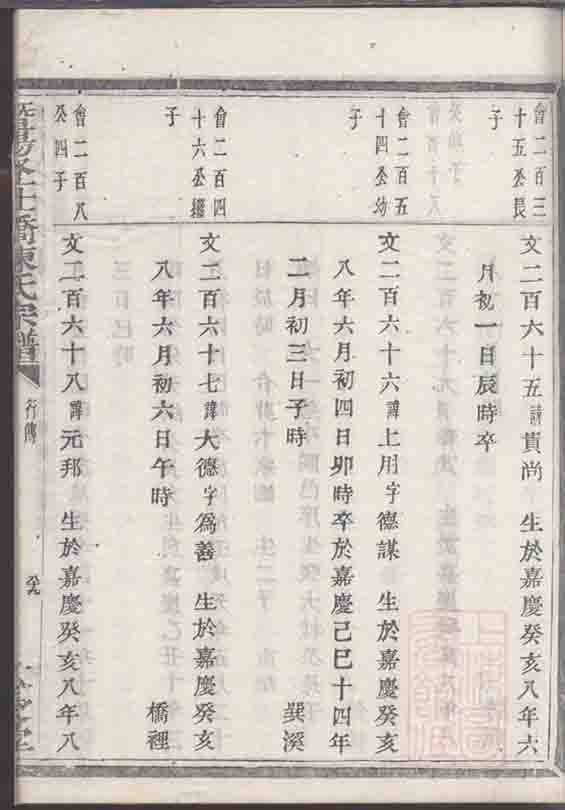 會二百三
十五公長
子
文二百六十五諱貴尚 生於嘉慶癸亥八年六
月初一日辰時卒
會二百五
十四公幼
子
文二百六十六諱上用字德謀 生於嘉慶癸亥
八年六月初四日卯時卒於嘉慶己巳十四年
二月初三日子時 巽溪
會二百四
十六公繼
子
文二百六十七諱大德字為善 生於嘉慶癸亥
八年六月初六日午時 橋裡
會二百八
公四子
文二百六十八諱元邦 生於嘉慶癸亥八年八
暨陽
橋陳氏宗譜
行傳